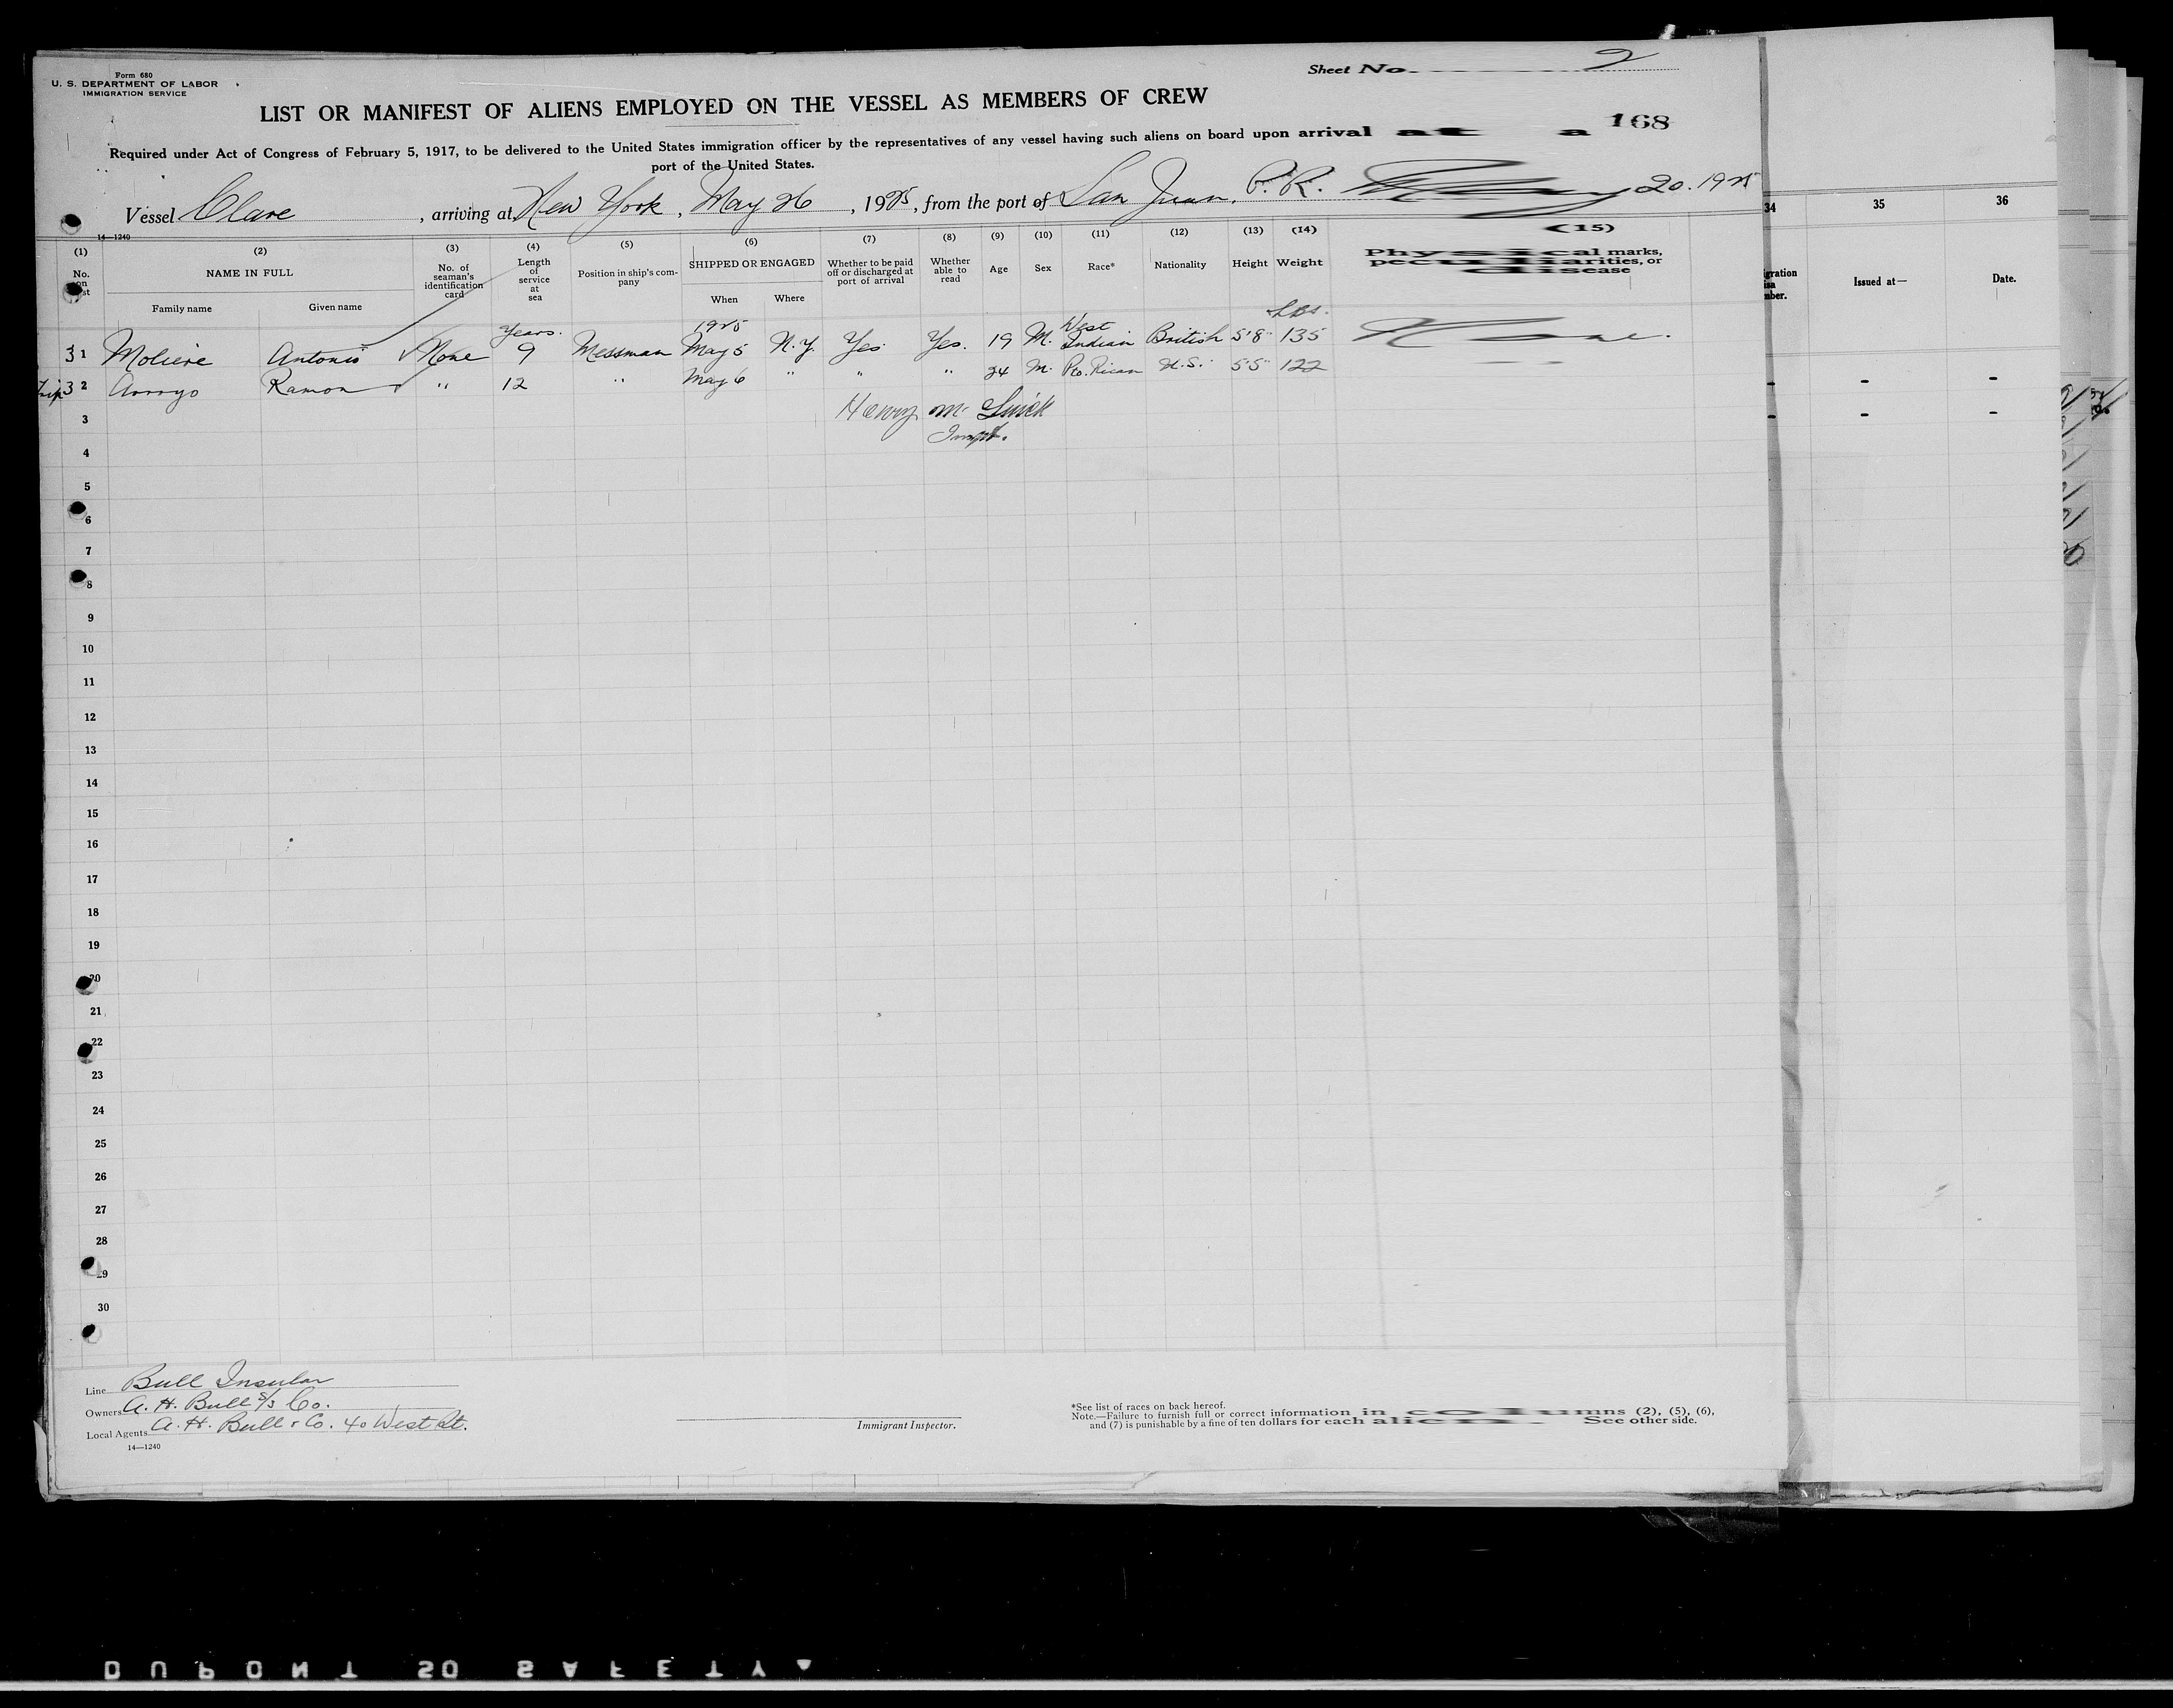 Form 680
U. S. DEPARTMENT OF LABOR
IMMIGRATION SERVICE
Sheet No. 2
LIST OR MANIFEST OF ALIENS EMPLOYED ON THE VESSEL AS MEMBERS OF CREW
168
Required under Act of Congress of February 5, 1917, to be delivered to the United States immigration officer by the representatives of any vessel having such aliens on board upon arrival at a
port of the United States.
Vessel Clare, arriving at New York, May 26, 1925, from the port of San Juan, P. R. May 20. 1925
14—1240
(1) (2) (3) (4) (5) (6) (7) (8) (9) (10) (11) (12) (13) (14) (15)
No. on list
NAME IN FULL
Family name Given name
No. of seaman's identification card
Length of service at sea
Position in ship's company
SHIPPED OR ENGAGED
When Where
Whether to be paid off or discharged at port of arrival
Whether able to read
Age Sex Race* Nationality Height Weight
Physical marks, peculiarities, or disease
34 35 36
Issued at— Date.
Years. 1925 Lbs.
3 1 Moliere Antonio None 9 Messman May 5 N.Y. Yes Yes. 19 M. West Indian British 5'8" 135 None.
3 2 Arroyo Ramon " 12 " May 6 " " " 24 M. Pto. Rican U.S. 5'5" 122
3 Henry M.
Inspt.
4
5
6
7
8
9
10
11
12
13
14
15
16
17
18
19
20
21
22
23
24
25
26
27
28
29
30
Line Bull Insular
Owners A. H. Bull S/S Co.
Local Agents A. H. Bull & Co. 40 West St.
14—1240
Immigrant Inspector.
*See list of races on back hereof.
Note.—Failure to furnish full or correct information in columns (2), (5), (6),
and (7) is punishable by a fine of ten dollars for each alien. See other side.
DUPONT SO SAFETY